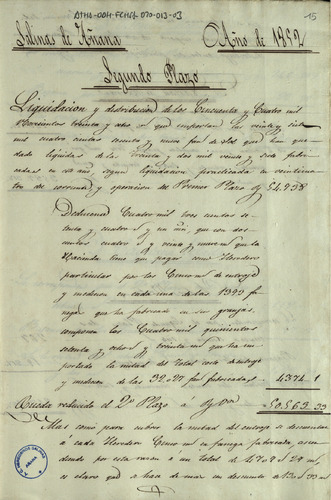 ATHA-DAH-FCHCA-070-013-03
15
Salinas de Añana
Año de 1852
Segundo Plazo
Liquidacion y distribucion de los Cincuenta y Cuatro mil
Novecientos treinta y ocho r.s que importan las veinte y siete
mil cuatro cientas sesenta y nueve fan.s de sal que han que
dado liquidas de las treinta y dos mil veinte y siete fabri
cadas en dho año, segun liquidacion practicada en veinticua
tro de corriente, y operacion del Primer Plazo 54.938
Deducense Cuatro mil tres cientos se
tenta y cuatro r.s y un mrs, que con dos
cientos cuatro r.s y veinte y nueve que la
Hacienda tiene que pagar como Heredero
particular por los Cinco mrs de entroje
y medicion en cada una de las 1393 fa
negas que ha fabricado en sus granjas
componen los Cuatro mil quinientos
setenta y ocho r.s y treinta mrs que ha im
portado la mitad del total costo de entroje
y medicion de las 32.027 fan.s fabricadas 4374 1
Queda reducido el 2º Plazo á 50.563 33
Mas como para cubrir la mitad del entroje se descuentan
á cada Heredero Cinco mrs en fanega fabricada, ascen
diendo por esta razon á un total de 4709 r.s 29 mrs
es claro que se hace de mas un descuento de